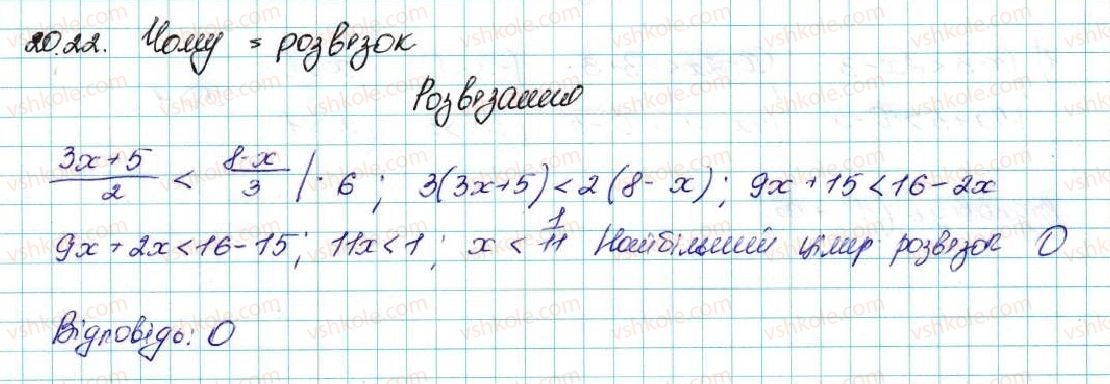 20.22. Чому = розвязок
Розвязанню
(3x+5)/2 < (8-x)/3 |· 6; 3(3x+5)<2(8-x); 9x+15<16-2x
9x+2x<16-15; 11x<1; x < 1/11 Найбільший цілир розвязок 0
Відповідь: 0